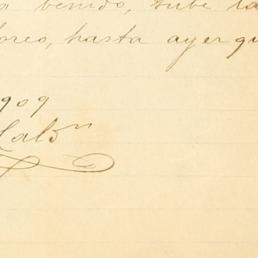 benido, sube la
oreo, hasta ayer qu
909